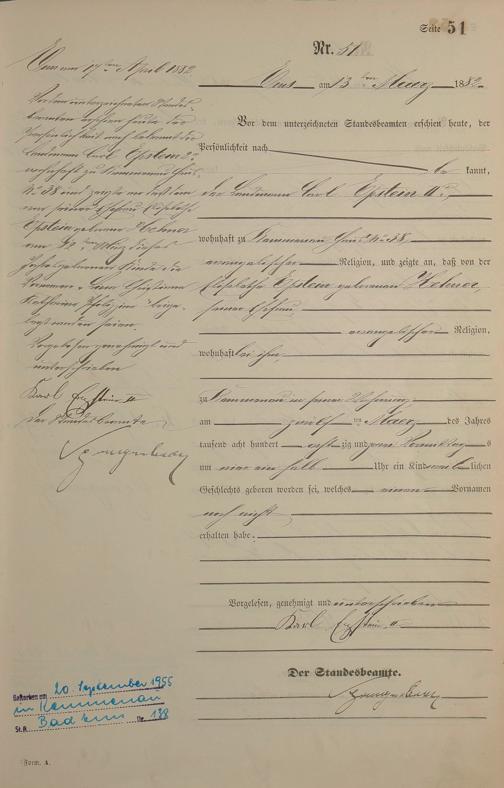 Seite 51
Nr. 51.
Ems am 13ten Maerz 1882
Vor dem unterzeichneten Standesbeamten erschien heute, der
Persönlichkeit nach
be kannt,
der Landmann Carl Epstein II
wohnhaft zu Kemmenau Haus N. 38
evangelischer Religion, und zeigte an, daß von der
Epstein geborenen Hehner
seiner Ehefrau
evangelischer Religion,
wohnhaft bei ihm,
zu Kemmenau in seiner Wohnung
am zwölf ten Maerz des Jahres
tausend acht hundert achtzig und zwei Vormittags
um ein halb Uhr ein Kind weiblichen
Geschlechts geboren worden sei, welches einen Vornamen
noch nicht
erhalten habe.
Vorgelesen, genehmigt und unterschrieben
Karl Epstein II
Der Standesbeamte.
Ems am April 1882
Vor dem unterzeichneten Standes-
beamten erschien heute der
Persönlichkeit nach bekannt der
Landmann Carl Epstein II
wohnhaft zu Kemmenau Haus
N. 38 und zeigte an daß dem
von seiner Ehefrau
Epstein geborenen Hehner
am 12ten März dieses
Jahres geborenen Kinde die
Vornamen
beige-
legt worden seien.
Vorgelesen genehmigt und
unterschrieben
Karl Epstein II
Der Standesbeamte
Gestorben am 20. September 1955
in Kemmenau
St.A. Bad Ems Nr. 138
Form. A.